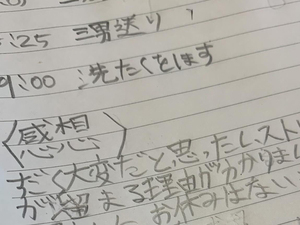 :25 三男送り
9:00 洗たくをします
〈感想〉
だく大変だと思ったし、スト
が留まる理由がわかりまし
お休みはない